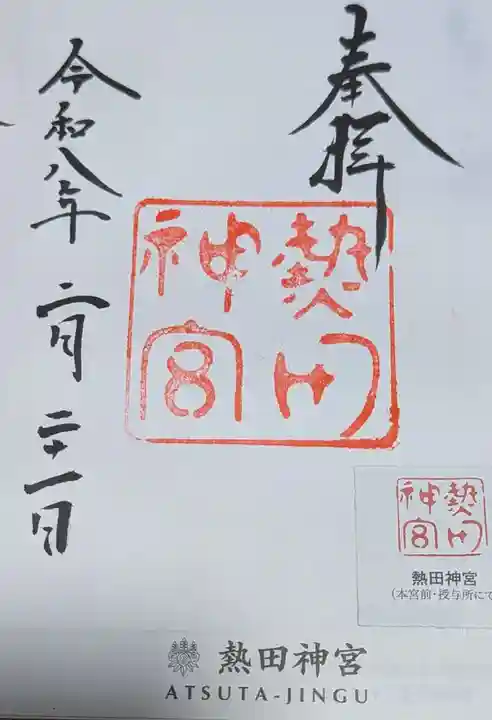 奉拝
熱田
神宮
令和八年
二月
二十一日
熱田
神宮
熱田神宮
(本宮前・授与所にて
熱田神宮
ATSUTA-JINGU